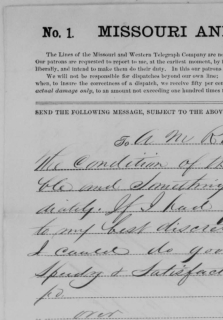 No. 1. MISSOURI AN
The Lines of the Missouri and Western Telegraph Company are
Our patrons are requested to report to me, at the earliest moment, by
fferently, and intend to make them do their duty. In this our patrons
We will not be responsible for dispatches beyond our own line;
when, to insure the correctness of a dispatch, we receive fifty per cent
actual damage only, to an amount not exceeding one hundred times
SEND THE FOLLOWING MESSAGE, SUBJECT TO THE ABOV
To A M
The Condition of
ble and Something
diately. If I had
to my best discre
I could do goo
Speedy & Satisfac
over